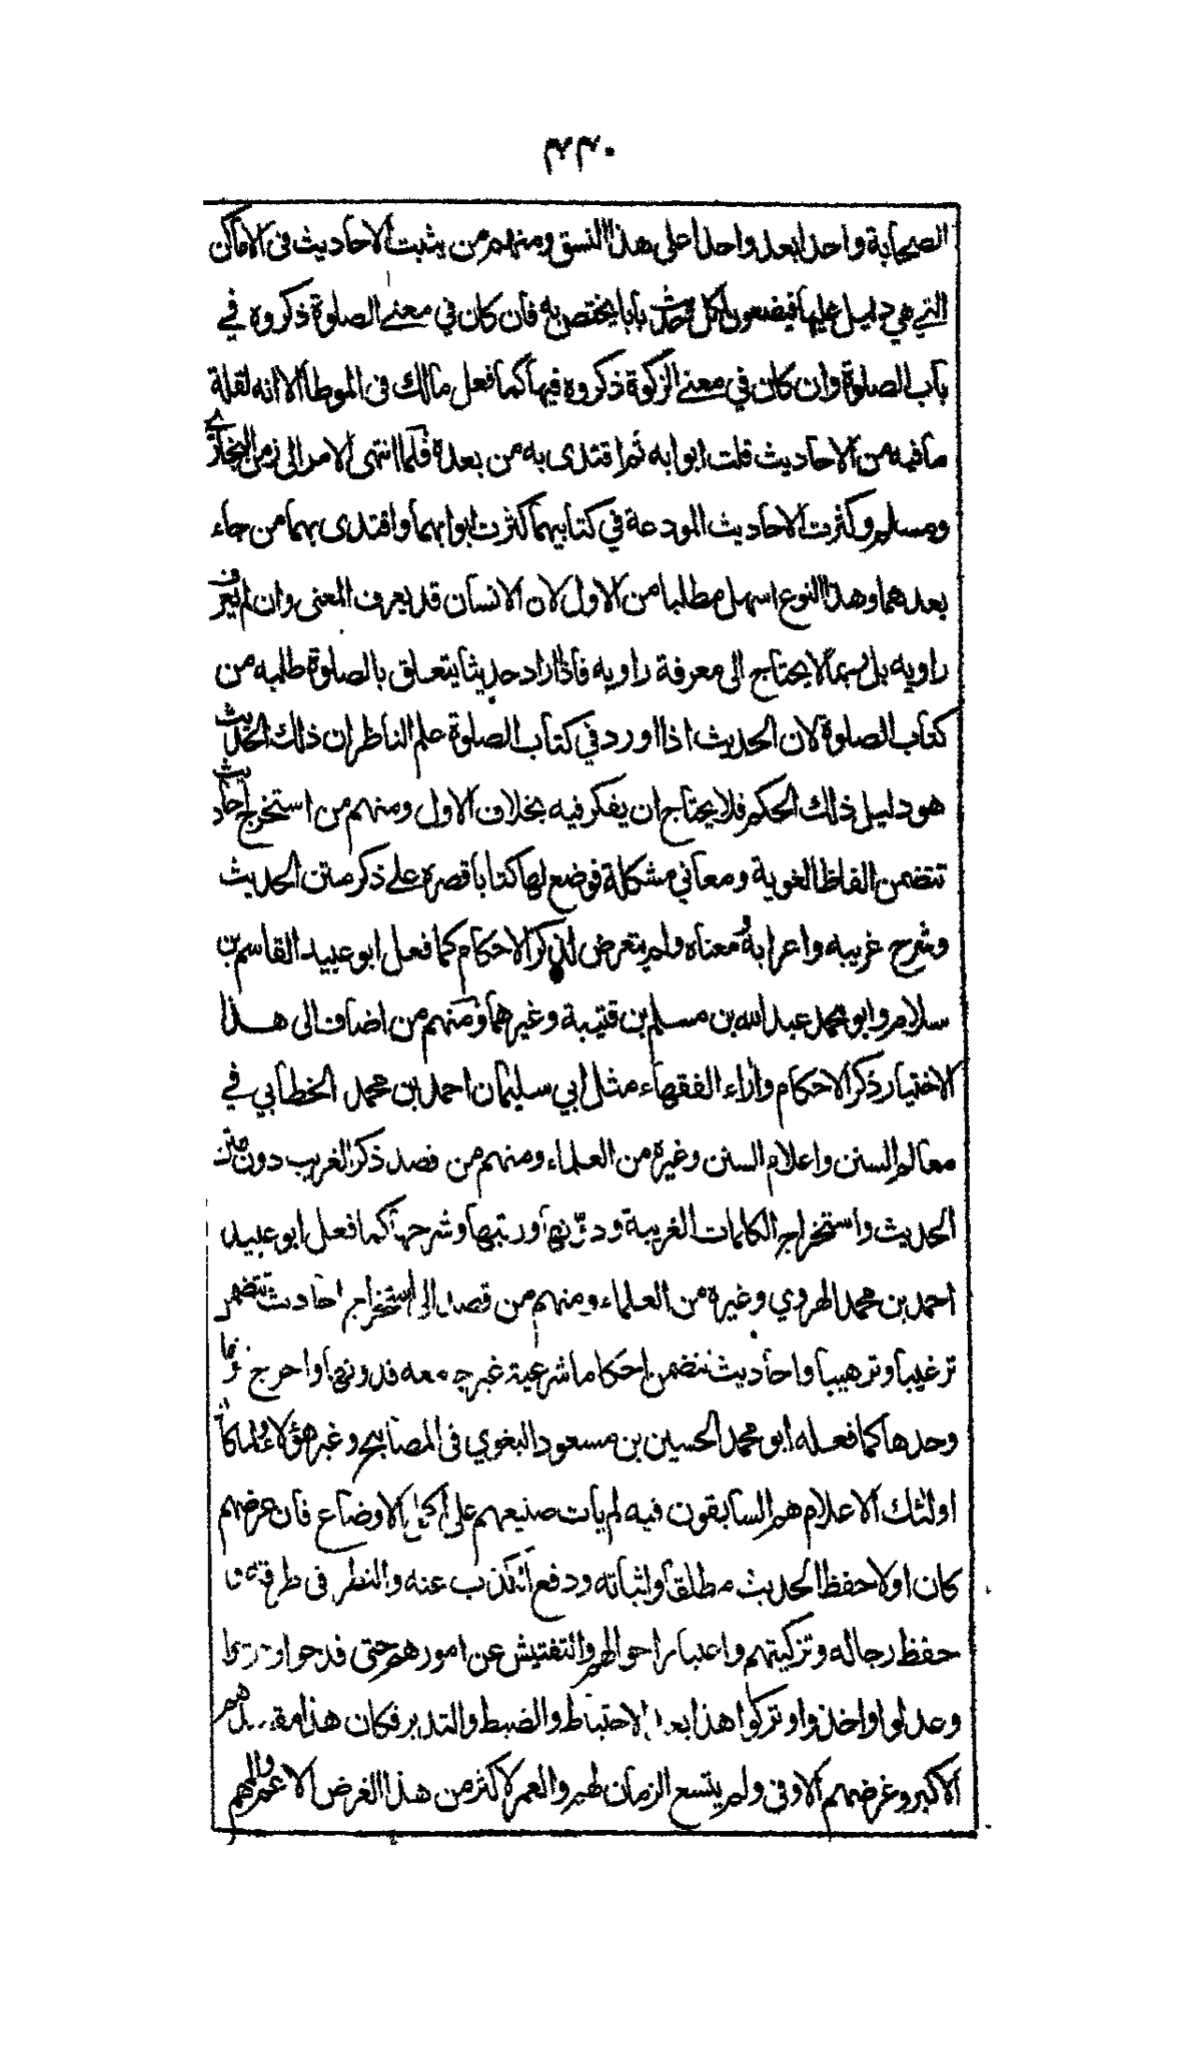 ٤٤٠
الصحابة واحدا بعد واحد اعلى هذا النسق ومنهم من يثبت الاحاديث فى الاماكن
التي هي دليل عليها فيضعون لكل حديث بابا يختص به فان كان في معنى الصلوة ذكروه في
باب الصلوة وان كان في معنى الزكوة ذكروه فيها كما فعل مالك فى الموطأ الا انه لقلة
ما فيه من الاحاديث قلت ابوابه ثم اقتدى به من بعده فلما انتهى الامر الى زمن البخاري
ومسلم وكثرت الاحاديث المودعة في كتابيهما كثرت ابوابهما واقتدى بهما من جاء
بعدهما وهذا النوع اسهل مطلبا من الاول لان الانسان قد يعرف المعنى وان لم يعرف
راويه بل ربما لا يحتاج الى معرفة راويه فاذا اراد حديثا يتعلق بالصلوة طلبه من
كتاب الصلوة لان الحديث اذا اورد في كتاب الصلوة علم الناظر ان ذلك الحديث
هو دليل ذلك الحكم فلا يحتاج ان يفكر فيه بخلاف الاول ومنهم من استخرج احاديث
تتضمن الفاظا لغوية ومعاني مشكلة فوضع لها كتابا قصره على ذكر متن الحديث
وشرح غريبه واعرابه ومعناه ولم يتعرض لذكر الاحكام كما فعل ابو عبيد القاسم بن
سلام وابو محمد عبد الله بن مسلم بن قتيبة وغيرهما ومنهم من اضاف الى هذا
الاختيار ذكر الاحكام واراء الفقهاء مثل ابي سليمان احمد بن محمد الخطابي في
معالم السنن واعلام السنن وغيره من العلماء ومنهم من قصد ذكر الغريب دون متن
الحديث واستخراج الكلمات الغريبة ودونها ورتبها وشرحها كما فعل ابو عبيد
احمد بن محمد الهروي وغيره من العلماء ومنهم من قصد الى استخراج احاديث تتضمن
ترغيبا وترهيبا واحاديث تتضمن احكاما شرعية غير جامعه فدونها واخرج
وحدها كما فعله ابو محمد الحسين بن مسعود البغوي فى المصابيح وغير هؤلاء ولما كان
اولئك الاعلام هم السابقون فيه لم يات صنيعهم على اكمل الاوضاع فان غرضهم
كان اولا حفظ الحديث مطلقا واثباته ودفع الكذب عنه والنظر فى طرقه
حفظ رجاله وتزكيتهم واعتبار احوالهم والتفتيش عن امورهم حتى قدحوا
وعدلوا واخذوا وتركوا هذا بعد الاحتياط والضبط والتدبر فكان هذا
الاكبر وغرضهم الاوفى ولم يتسع الزمان لهم والعمر لاكثر من هذا الغرض الاعم والمهم